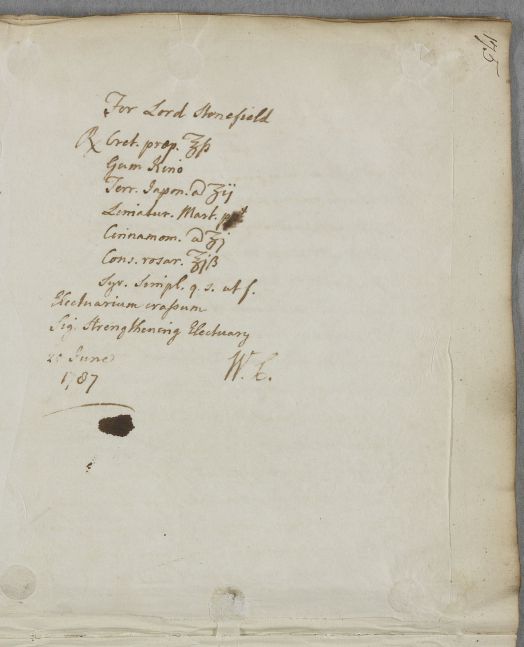 145
For Lord Stonefield
℞ Cret. prep. ℥ß
Gum Kino
Terr. Japon. a ʒij
Limatur. Mart. ppt
Cinnamom. a ʒj
Cons. rosar. ℥jß
Syr. Simpl. q. s. ut f.
Electuarium crassum
Sig. Strengthening Electuary
June
1787
W. C.